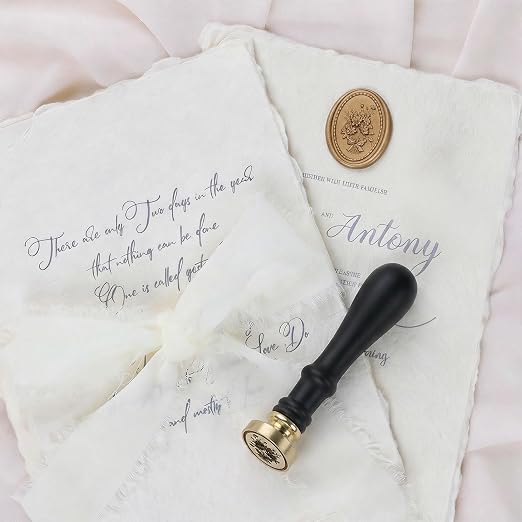 There are only Two days in the year
that nothing can be done.
One is called
Love, Do
and mostly
TOGETHER WITH THEIR FAMILIES
AND
Antony